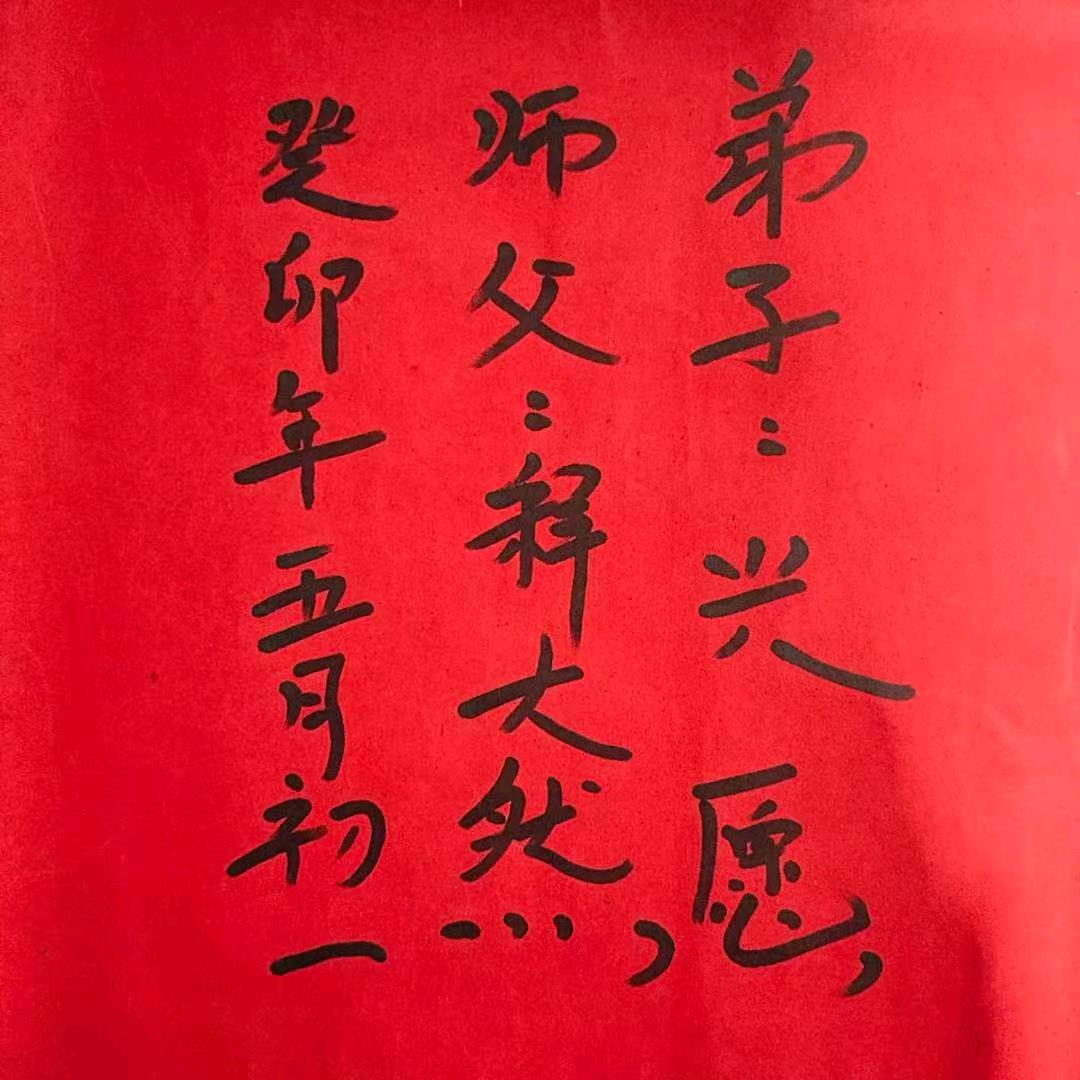 弟子：兴愿，
师父：释大然，
癸卯年五月初一